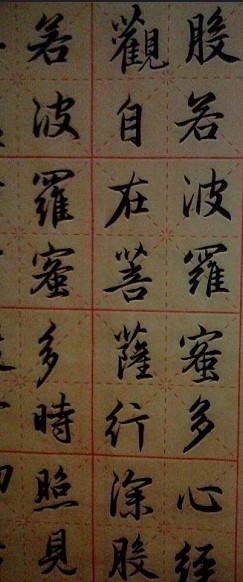 般若波羅蜜多心經
觀自在菩薩行深般
若波羅蜜多時照見